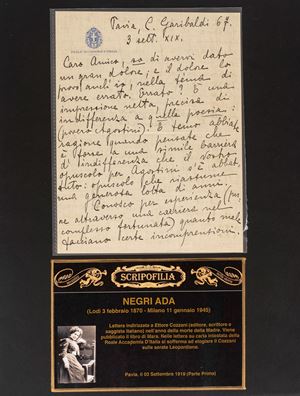 Pavia, C. Garibaldi 67.
3 sett. XIX.
REALE ACCADEMIA D'ITALIA
Caro Amico, so di avervi dato
un gran dolore, e il dolore lo
provo anch'io, nella tema di
avere errato. Errato? È una
impressione netta, precisa di
indifferenza a quella poesia:
(povero Agostini). E temo abbiate
ragione quando pensate che
è forse la una simile barriera
d'indifferenza che il vostro
opuscolo per Agostini s'è abbat
tuto: opuscolo che riassume
una generosa lotta di anni.
Conosco per esperienza (pu-
re attraverso una carriera nel
complesso fortunata) quanto male
facciano certe incomprensioni.
SCRIPOFILIA
NEGRI ADA
(Lodi 3 febbraio 1870 - Milano 11 gennaio 1945)
Lettera indirizzata a Ettore Cozzani (editore, scrittore e
saggista italiano) nell'anno della morte della Madre. Viene
pubblicato il libro di Mara. Nella lettera su carta intestata della
Reale Accademia D'Italia si sofferma ad elogiare il Cozzani
sulle serate Leopardiane.
Pavia, il 03 Settembre 1919 (Parte Prima)